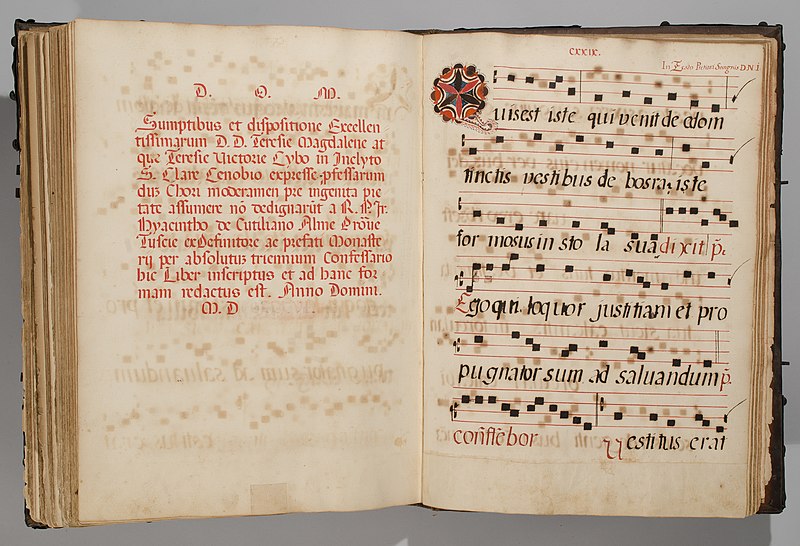 D. O. M.
Sumptibus et dispositione Excellen
tissimarum D. D. Teresie Magdalene at
que Teresie Victorie Cybo in Inclyto
S. Clare Cenobio expresse-pfessarum
dus Chori moderamen pre ingenita pie
tate assumere nõ dedignarũt a R. P. Fr.
Hyacintho de Cutiliano Alme Prõue
Tuscie exDefinitore ac prefati Monaste
rij per absolutũ triennium Confessario
hic Liber inscriptus et ad hanc for
mam redactus est. Anno Domini.
M. D
CXXIX.
In Festo Pretiosi Sanguis D.N.I.
Quisest iste qui venit de edom
tinctis vestibus de bosra, iste
formosus in sto la sua dixit p̃.
Ego qui loquor justitiam et pro
pugnator sum ad saluandum p̃.
confitebor Vestitus erat